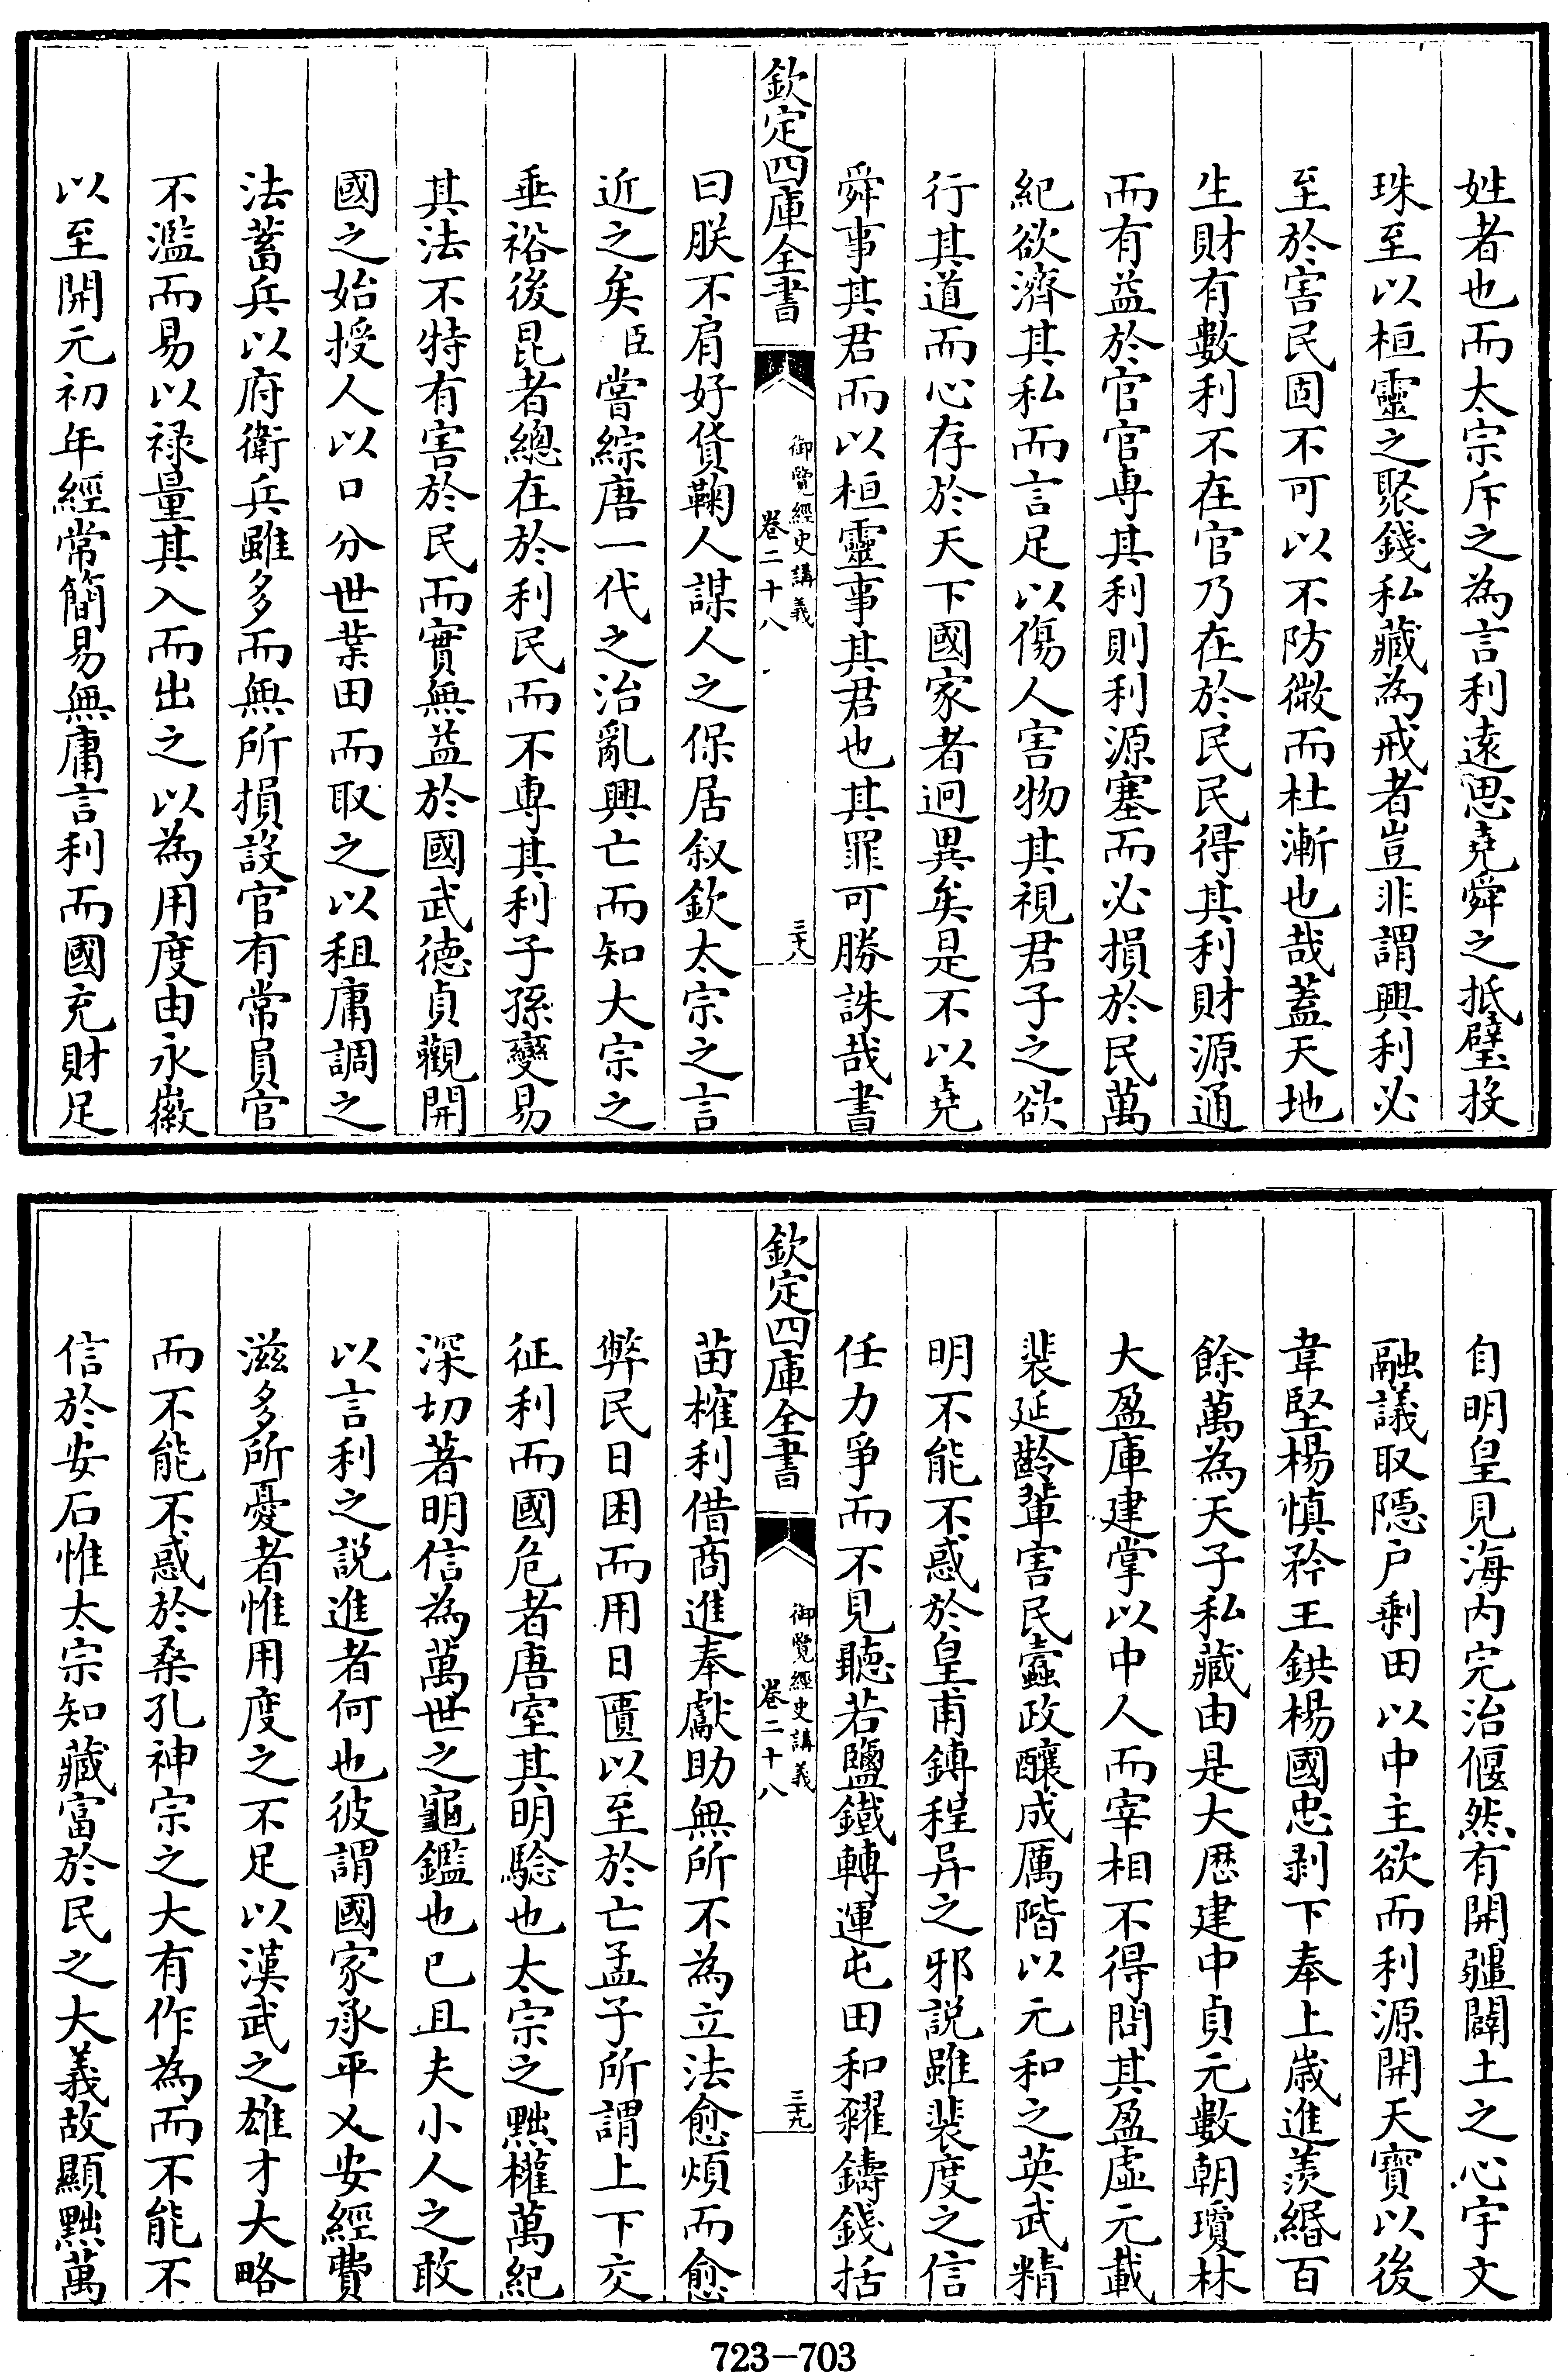 姓者也而太宗斥之為言利遠思堯舜之抵璧投
珠至以桓靈之聚錢私藏為戒者豈非謂興利必
至於害民固不可以不防微而杜漸也哉蓋天地
生財有數利不在官乃在於民民得其利財源通
而有益於官官専其利則利源塞而必損於民萬
紀欲濟其私而言足以傷人害物其視君子之欲
行其道而心存於天下國家者迥異矣是不以堯
舜事其君而以桓靈事其君也其罪可勝誅哉書
欽定四庫全書
御覽經史講義
卷二十八
三十八
曰朕不肩好貨鞠人謀人之保居叙欽太宗之言
近之矣臣嘗綜唐一代之治亂興亡而知大宗之
垂裕後昆者總在於利民而不専其利子孫變易
其法不特有害於民而實無益於國武德貞觀開
國之始授人以口分世業田而取之以租庸調之
法蓄兵以府衛兵雖多而無所損設官有常員官
不濫而易以禄量其入而出之以為用度由永徽
以至開元初年經常簡易無庸言利而國充財足
自明皇見海内完治偃然有開疆闢土之心宇文
融議取隱户剩田以中主欲而利源開天寶以後
韋堅楊慎矜王鉷楊國忠剥下奉上歲進羨緡百
餘萬為天子私藏由是大厯建中貞元數朝瓊林
大盈庫建掌以中人而宰相不得問其盈虛元載
裴延齡輩害民蠧政釀成厲階以元和之英武精
明不能不惑於皇甫鏄程异之邪説雖裴度之信
任力爭而不見聽若鹽鐵轉運屯田和糴鑄錢括
欽定四庫全書
御覽經史講義
卷二十八
三十九
苗榷利借商進奉獻助無所不為立法愈煩而愈
弊民日困而用日匱以至於亡孟子所謂上下交
征利而國危者唐室其明驗也太宗之黜權萬紀
深切著明信為萬世之龜鑑也已且夫小人之敢
以言利之説進者何也彼謂國家承平乂安經費
滋多所憂者惟用度之不足以漢武之雄才大略
而不能不惑於桑孔神宗之大有作為而不能不
信於安石惟太宗知藏富於民之大義故顯黜萬
723-703